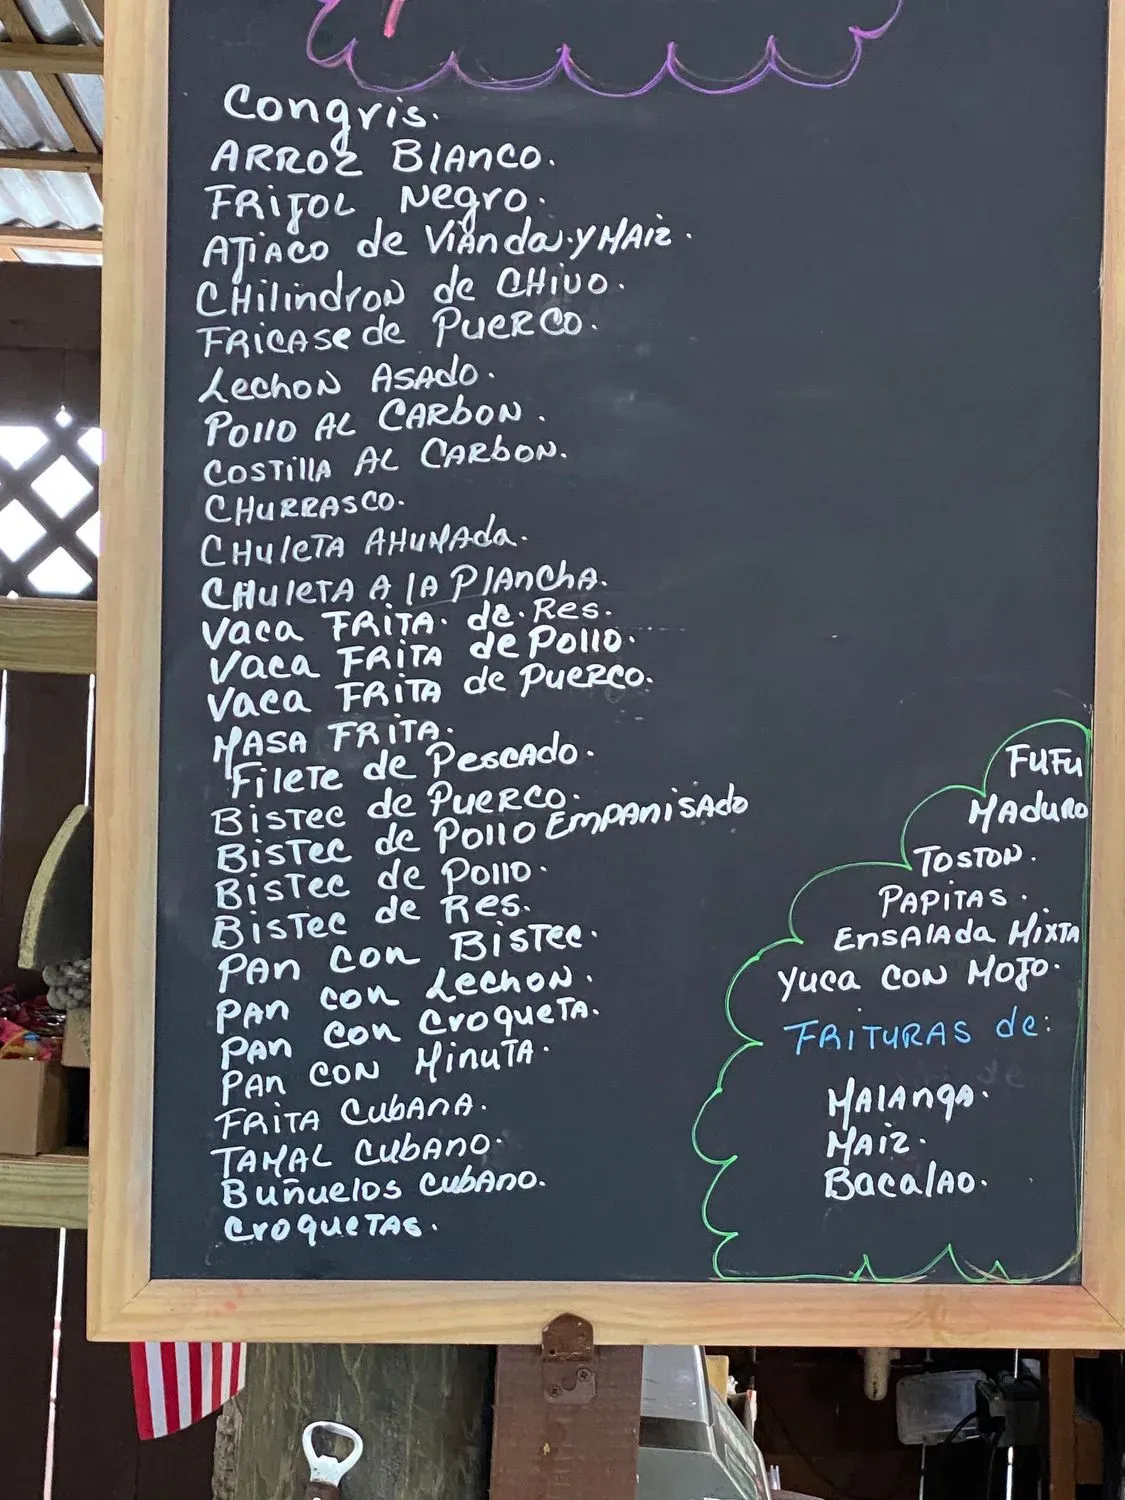 Congris.
ARROZ BlANCO.
FRIJOL Negro.
AJIACO de VIANda.Y MAIZ.
CHilindroN de CHIVO.
FRICASE de PUERCO.
LechoN ASAdo.
POllO AL CARbON.
COSTillA AL CARbON.
CHURRASCO.
CHUleTA AHUMAda.
CHUleTA A lA PlANChA.
Vaca FRITA. de. Res.
Vaca FRITA de Pollo.
Vaca FRITA de PUERCO.
MASA FRITA.
FileTe de PescAdo.
BisTec de PUERCO.
BisTec de Pollo EMPANisAdo
BisTec de Pollo.
BisTec de Res.
PAN con BisTec.
PAN con Lechon.
PAN con CroqueTA.
PAN CON MinuTA.
FRITA CubANA.
TAMAL CubANO.
Buñuelos CubANO.
CroqueTAS.
FUFU
MAduRO
TOSTON.
PAPITAS.
ENSAlAda MIXTA
Yuca CON MOJO.
FRITURAS de:
MAlANgA.
MAIZ.
BacalAO.